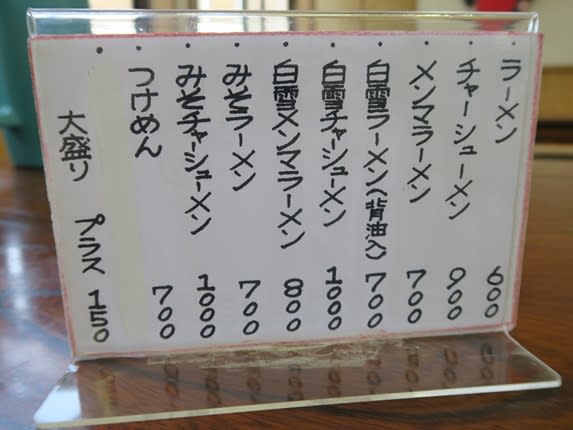 ・ラーメン 600
・チャーシューメン 900
・メンマラーメン 700
・白雪ラーメン(背油入) 700
・白雪チャーシューメン 1000
・白雪メンマラーメン 800
・みそラーメン 700
・みそチャーシューメン 1000
・つけめん 700
・大盛り プラス 150